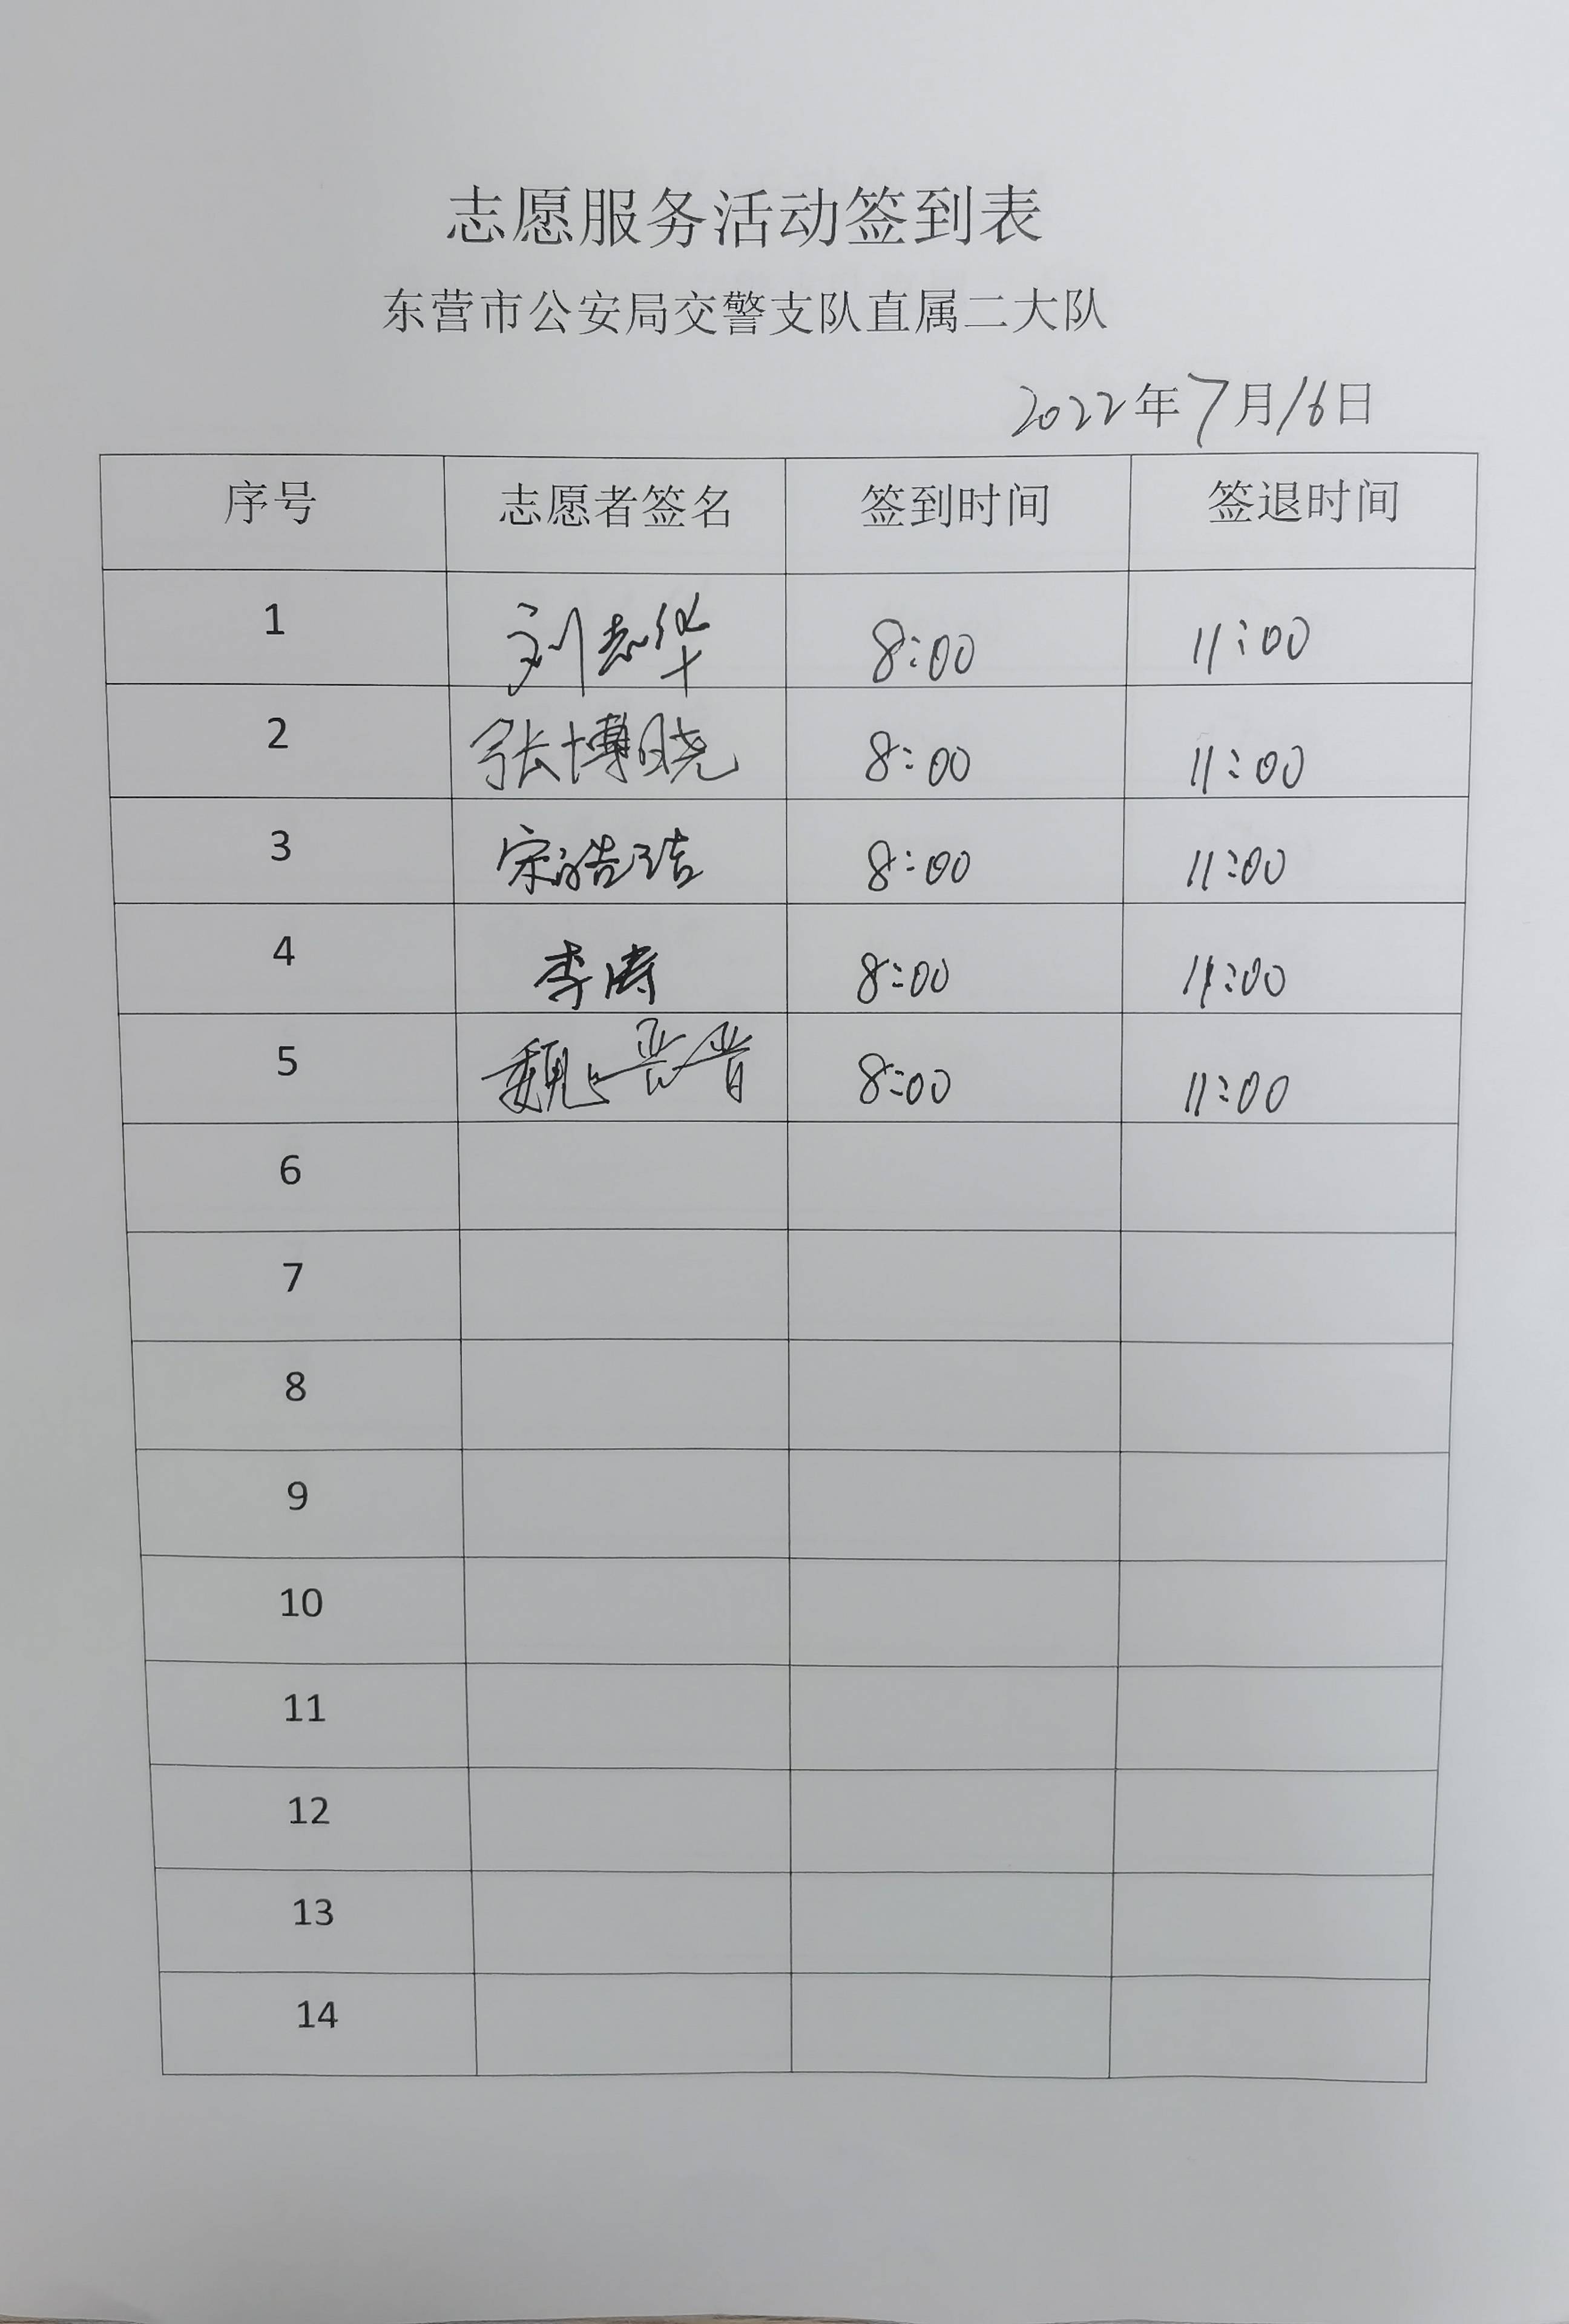 志愿服务活动签到表
东营市公安局交警支队直属二大队
2022年7月16日
序号 志愿者签名 签到时间 签退时间
1 刘志华 8:00 11:00
2 张博晓 8:00 11:00
3 宋皓洁 8:00 11:00
4 李涛 8:00 11:00
5 魏晋 8:00 11:00
6
7
8
9
10
11
12
13
14